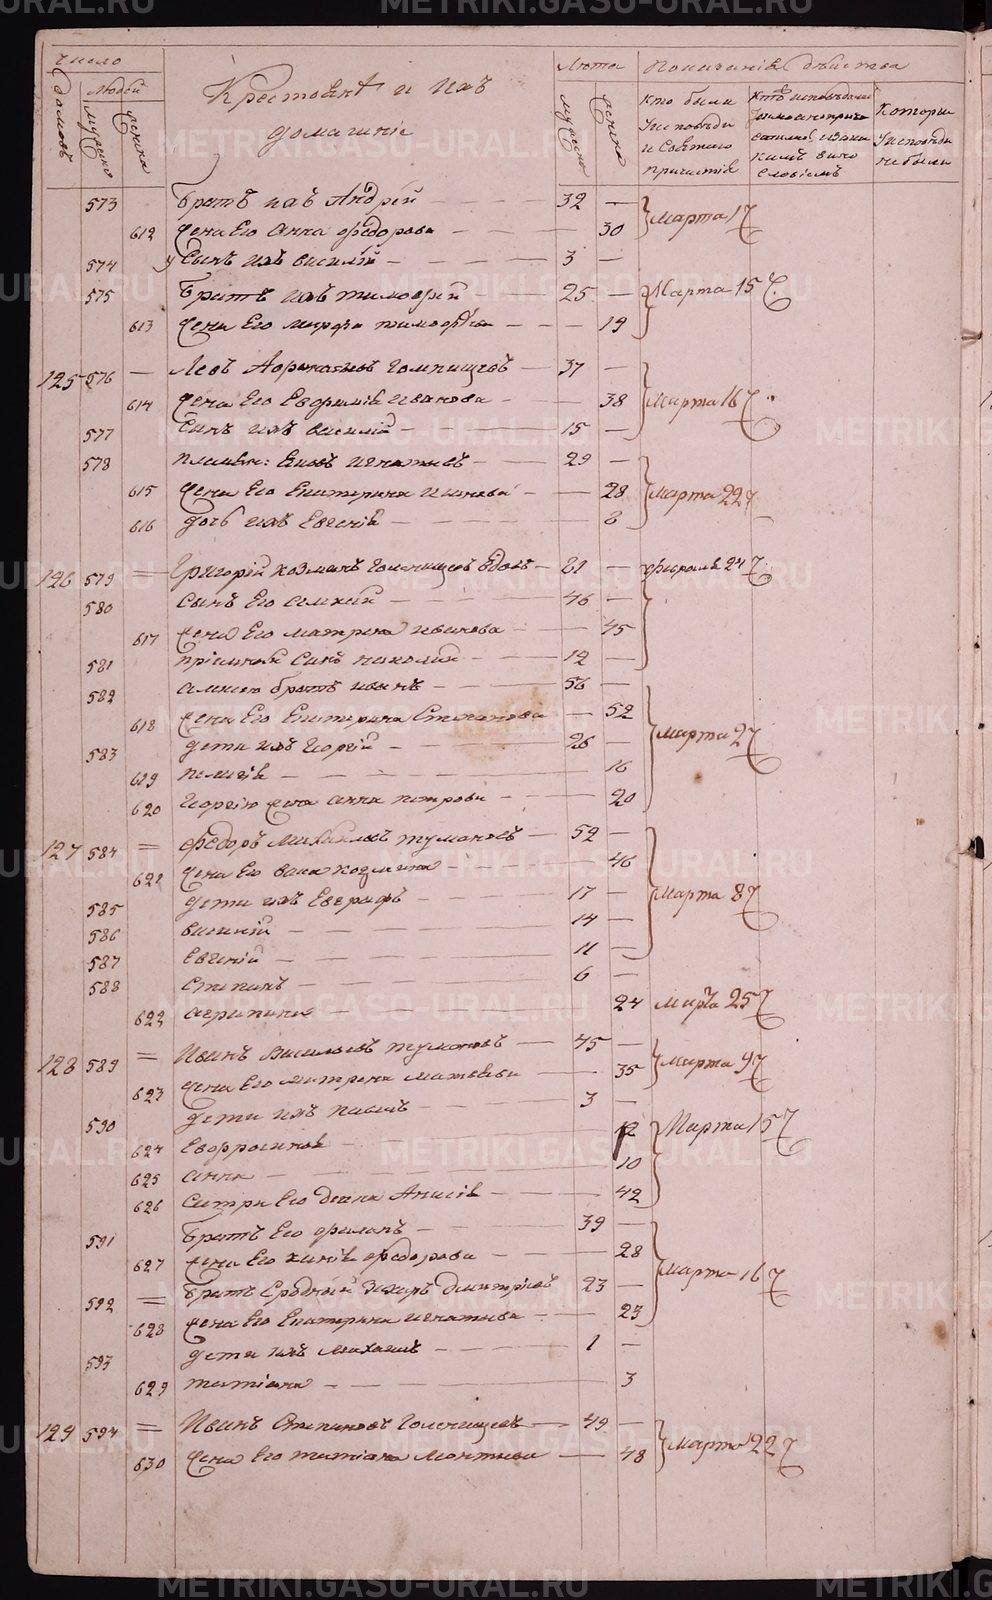 METRIKI.GASO-URAL.RU
Число
домовъ
Людей
мужска
женска
Крестьянѣ и ихъ
домашніе
Лѣта
мужска
женска
Показаніе действа
кто были
у исповѣди
и Святаго
причастія
Которы
у исповѣди
не были
573 Братъ ихъ Андрей 32
612 жена Его Анна Федорова 30 Марта 17
574 Сынъ ихъ василій 3
575 Братъ ихъ тимофей 25 Марта 15
613 жена Его марфа тимофѣва 19
125 576 37
614 жена Его Евфимія иванова 38 Марта 16
577 Сынъ ихъ василій 15
578 племян: игнатьевъ 29
615 жена Его Екатерина 28 Марта 22
616 дочь ихъ Евгенія
126 579 Григорій козминъ вдовъ 81 февраля 24
580 Сынъ Его алексѣй 46
617 жена Его матрена иванова 45
581 пріемной Сынъ николай 12
582 алексею братъ иванъ 56
618 жена Его Екатерина Степанова 52
583 дети ихъ Георгій 26 Марта 2
619 пелагія 16
620 Георгію жена анна петрова 20
127 584 Федоръ Михайловъ тумановъ 52
621 жена Его козмина 46
585 дети ихъ Евграфъ 17 Марта 8
586 василій 14
587 Евгеній 11
588 Степанъ 6
622 агрипина 24 Марта 25
128 589 Иванъ Васильевъ тумановъ 45
623 жена Его матрена матвѣева 35 Марта 9
590 дети ихъ павелъ 3
624 Евфросинія 12 Марта 15
625 анна 10
626 Сестра Его девка Анисія 42
591 Братъ Его филипъ 39
627 жена Его ксенія федорова 28
592 Братъ Сродный Захаръ Дмитріевъ 23 Марта 16
628 жена Его Екатерина игнатьева 23
593 дети ихъ михаилъ 1
629 татіана 3
129 594 Иванъ Степановъ Голенищевъ 49
630 жена Его татіана 48 Марта 22